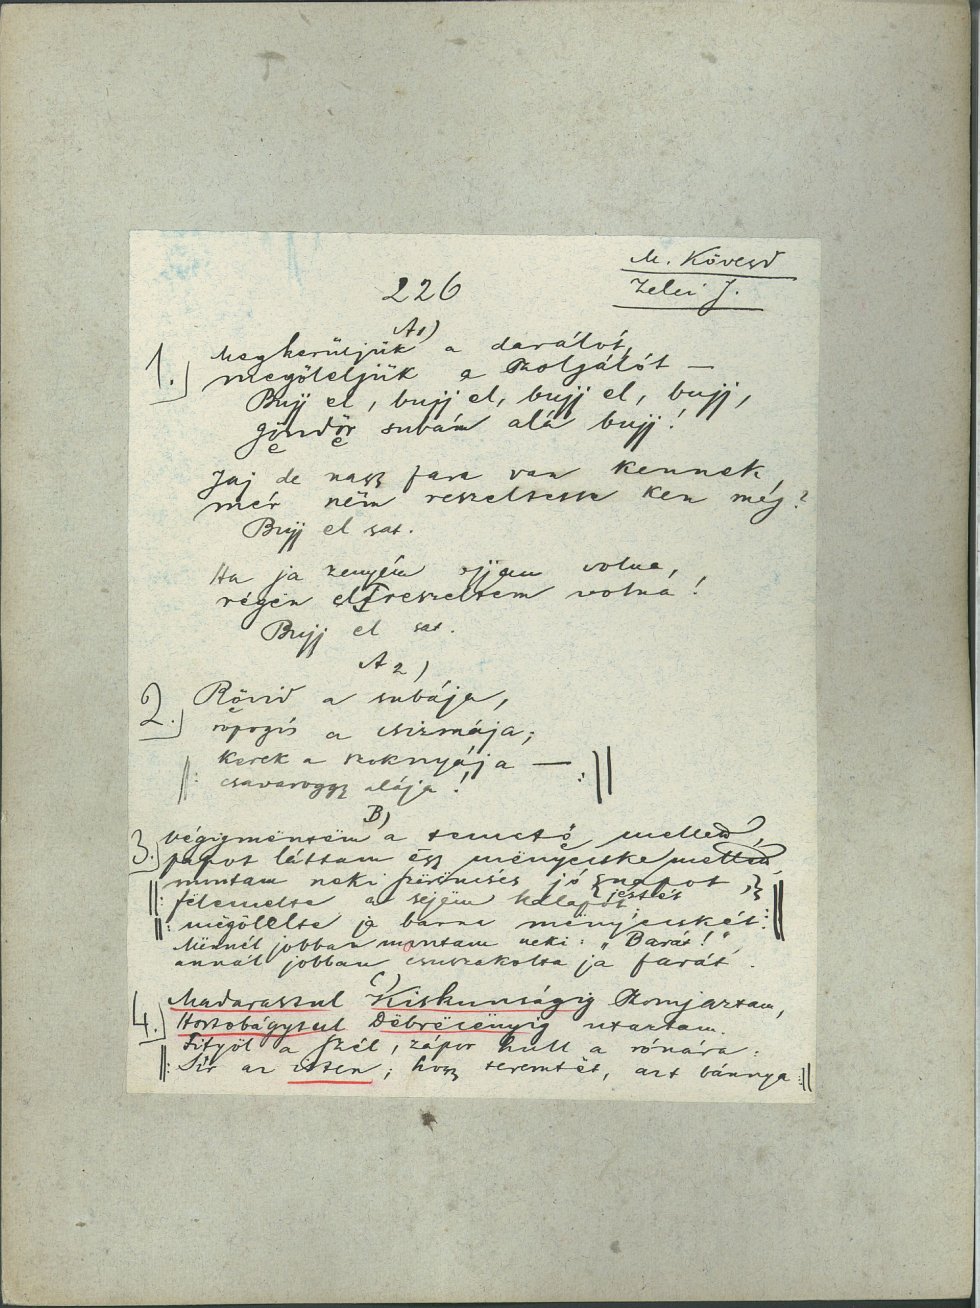 M. Kövesd
Zelei J.
226
A1)
1.) Megkerüljük a darálót,
megöleljük a szolgálót —
Bujj el, bujj el, bujj el, bujj,
göndör subám alá bujj!
Jaj de nagy fara van kennek,
mér nëm reszeltesse ken még?
Bujj el sat.
Ha ja zenyém ijjen volna,
régën elreszeltem volna!
Bujj el sat.
A2)
2.) Rövid a subája,
ropogós a csizmája;
kerek a szoknyája —
||: csavarogygy alája! :||
B)
3.) Végigmëntëm a temető mellett,
papot láttam ëgy mënyecske mellett,
||: montam neki szërëncsés jó napot, }
estét }
félemelte a selyëm kalapot :||
||: mëgölelte ja barna mënyecskét :||
Mënnél jobban montam neki: „Barát!"
annál jobban csuszakolta ja farát.
C)
4.) Madarastul Kiskunságig szomjaztam,
Hortobágytul Dëbrëcënyig utaztam.
Fityöl a szél, zápor hull a rónára:
||: Sír az isten; hogy teremtët, azt bánnya :||